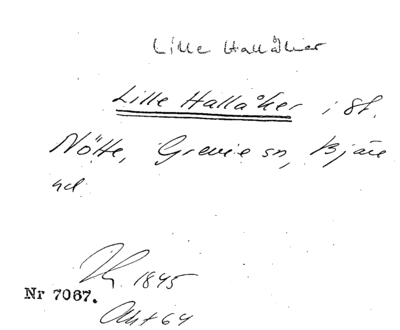 Lille Hallåker
Lille Hallåker i St.
Nötte, Grevie sn, Bjäre
hd
1845
Nr 7067.
Akt 64